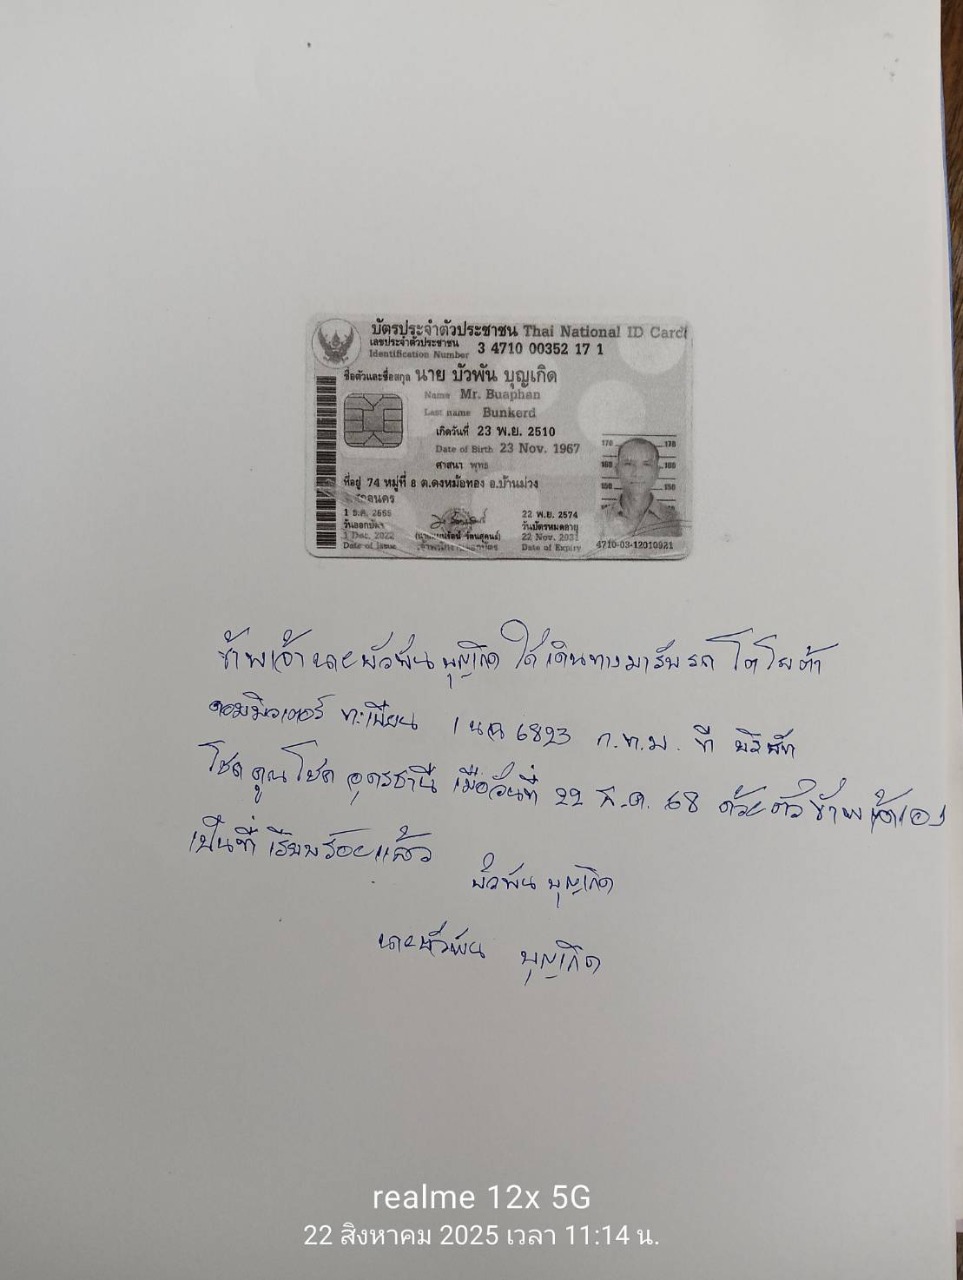 บัตรประจำตัวประชาชน Thai National ID Card
เลขประจำตัวประชาชน
Identification Number 3 4710 00352 17 1
ชื่อตัวและชื่อสกุล นาย บัวพัน บุญเกิด
Name Mr. Buaphan
Last name Bunkerd
เกิดวันที่ 23 พ.ย. 2510
Date of Birth 23 Nov. 1967
ศาสนา พุทธ
ที่อยู่ 74 หมู่ที่ 8 ต.ดงหม้อทอง อ.บ้านม่วง
1 ธ.ค. 2565
วันออกบัตร
1 Dec. 2022
Date of Issue
22 พ.ย. 2574
วันบัตรหมดอายุ
22 Nov. 2031
Date of Expiry
4710-03-12010921
ข้าพเจ้า นายบัวพัน บุญเกิด ได้เดินทางมารับรถ โตโยต้า
คอมมิวเตอร์ ทะเบียน 1 นค 6823 ก.ท.ม. ที่ บริษัท
โชคคูณโชค อุดรธานี เมื่อวันที่ 22 ส.ค. 68 ด้วยตัวข้าพเจ้าเอง
เป็นที่ เรียบร้อยแล้ว
บัวพัน บุญเกิด
นายบัวพัน บุญเกิด
realme 12x 5G
22 สิงหาคม 2025 เวลา 11:14 น.